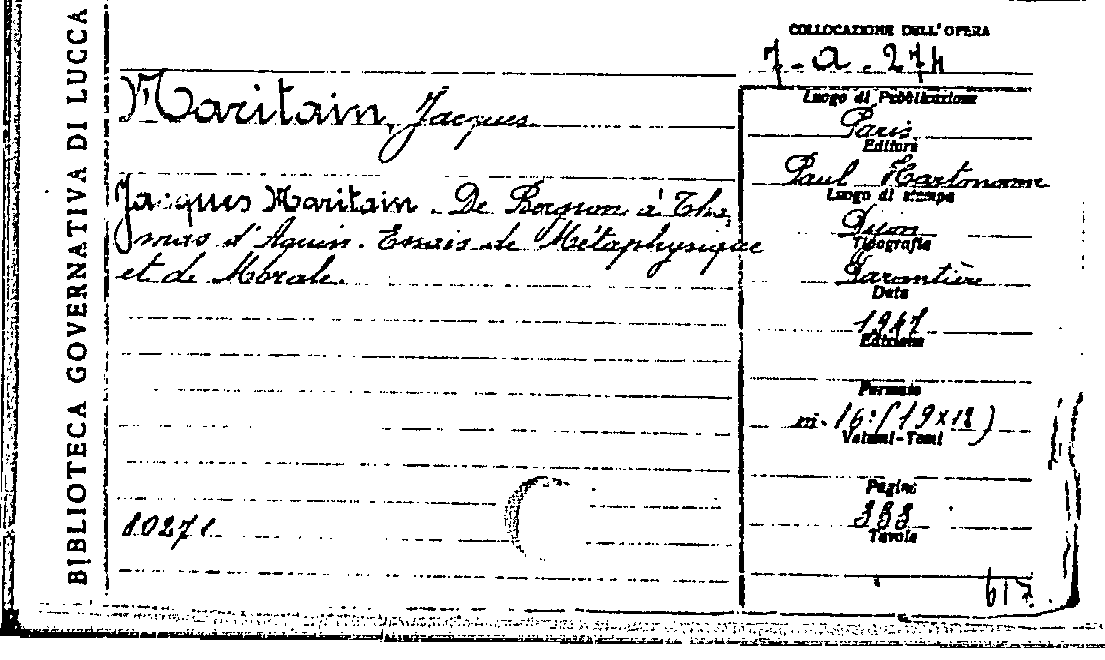 BIBLIOTECA GOVERNATIVA DI LUCCA
COLLOCAZIONE DELL'OPERA
7-a.274
Maritain, Jacques
Jacques Maritain. De Bergson à Tho,
mas d'Aquin. Essais de Métaphysique
et de Morale.
10271
Luogo di Pubblicazione
Paris
Editore
Paul Hartmann
Luogo di stampa
Dijon
Tipografia
Darantière
Data
1947
Edizione
Formato
in-16:(19x12)
Volumi-Tomi
Pagine
333
Tavole
617